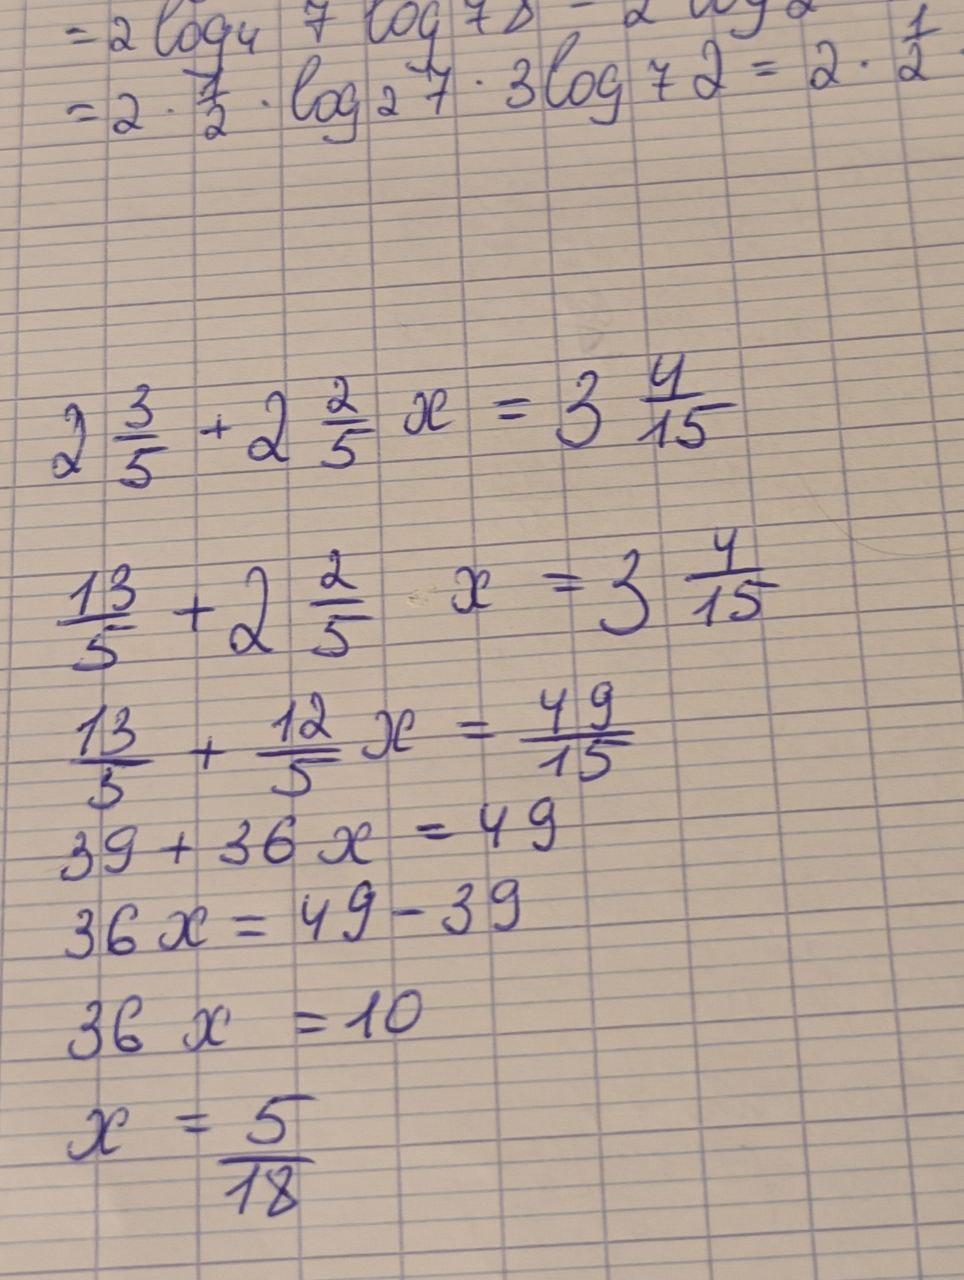 = 2 log₄ 7 log₇ 8
= 2 · 1/2 · log₂ 7 · 3 log₇ 2 = 2 · 1/2
2 3/5 + 2 2/5 x = 3 4/15
13/5 + 2 2/5 x = 3 4/15
13/5 + 12/5 x = 49/15
39 + 36 x = 49
36 x = 49 - 39
36 x = 10
x = 5/18